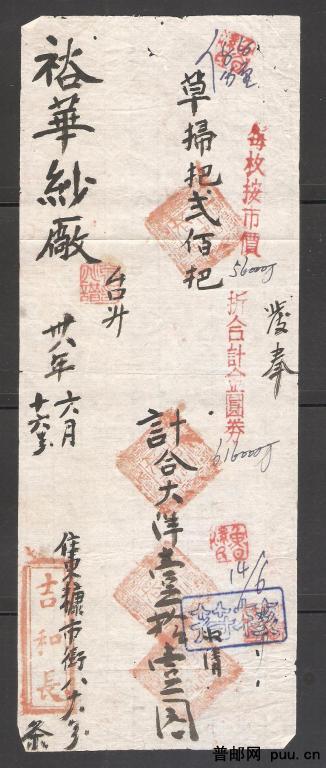 發奉
每枚按市價
56000
折合計金圓券
616000
草掃把弍佰把
計合大洋壹拾壹
裕華紗廠
台升
卅八年六月
十六
東糠市街八十
吉和長
条
14/6
普邮网 puu.cn